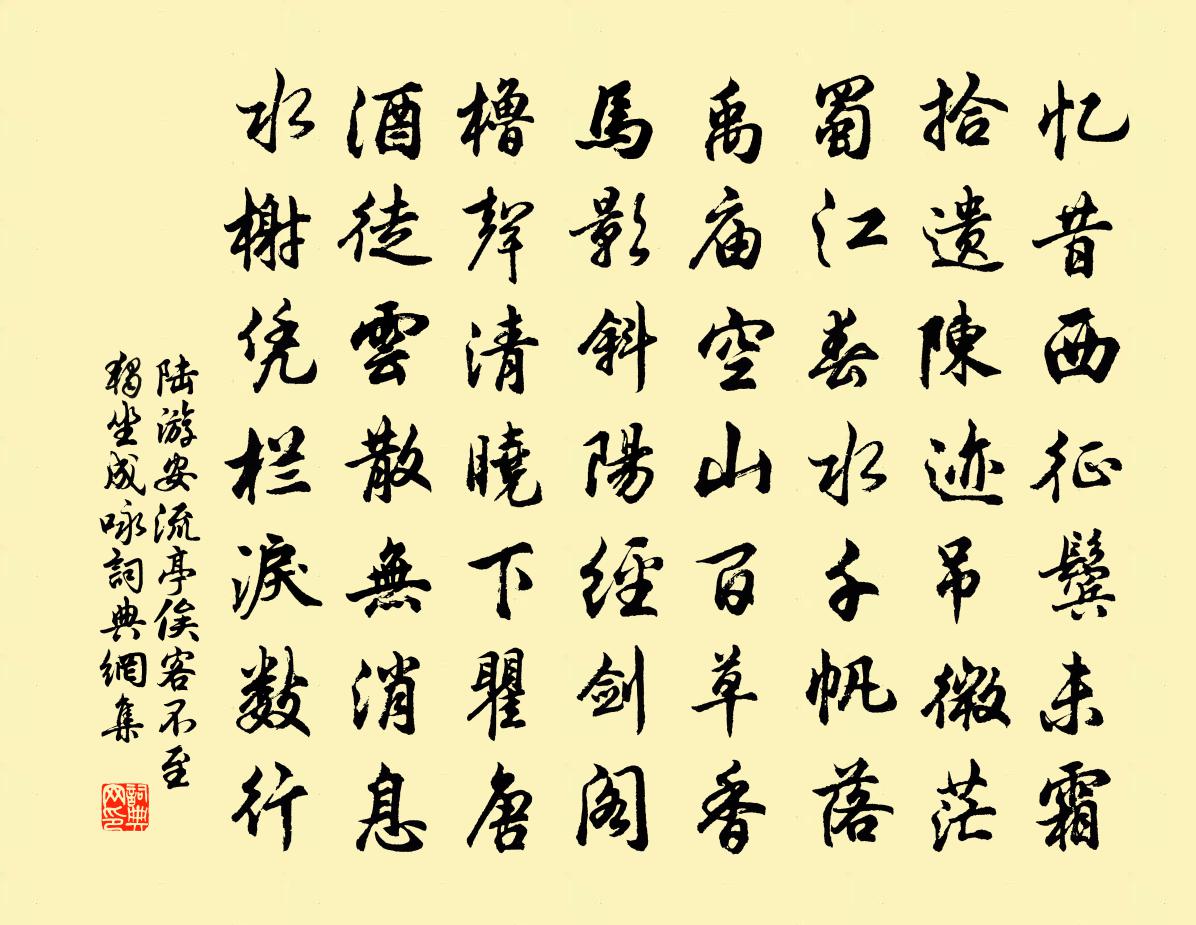 忆昔西征鬓未霜
拾遗陳迹吊微茫
蜀江春水千帆落
禹庙空山百草香
馬影斜陽經剑阁
橹聲清曉下瞿唐
酒徒雲散無消息
水榭凭栏淚數行
陆游安流亭俟客不至
獨坐成咏詞典網集
詞典网印